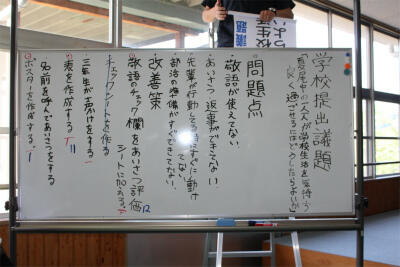 学校提出議題
「夏尾中の一人一人が学校生活を気持ち
良く過ごせるにはどうしたらよいか」
問題点
・敬語が使えてない
・あいさつ、返事ができてない。
・先輩が行動している時にすぐに動け
てない。
・部活の準備がすぐできてない。
改善策
・敬語のチェック欄をあいさつ評価
シートに加える。
・チェックシートを作る
・三年生が声かけをする
・表を作成する
・名前を呼んであいさつをする
・ポスターを作成する。